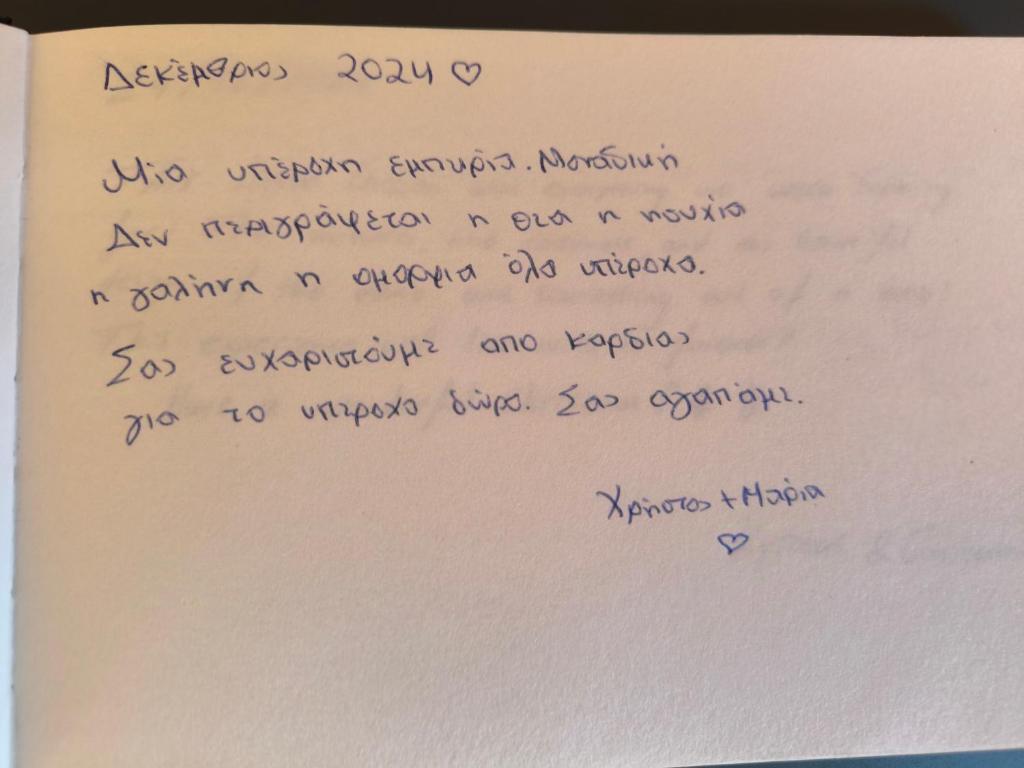 Δεκέμβριος 2024 ♡
Μία υπέροχη εμπηρία. Μοναδική
Δεν περιγράφεται η θεα η ησυχία
η γαλήνη η ομορφια όλα υπέροχα.
Σας ευχαριστούμε απο καρδιας
για το υπέροχο δώρο. Σας αγαπάμε.
Χρήστος + Μαρία
♡